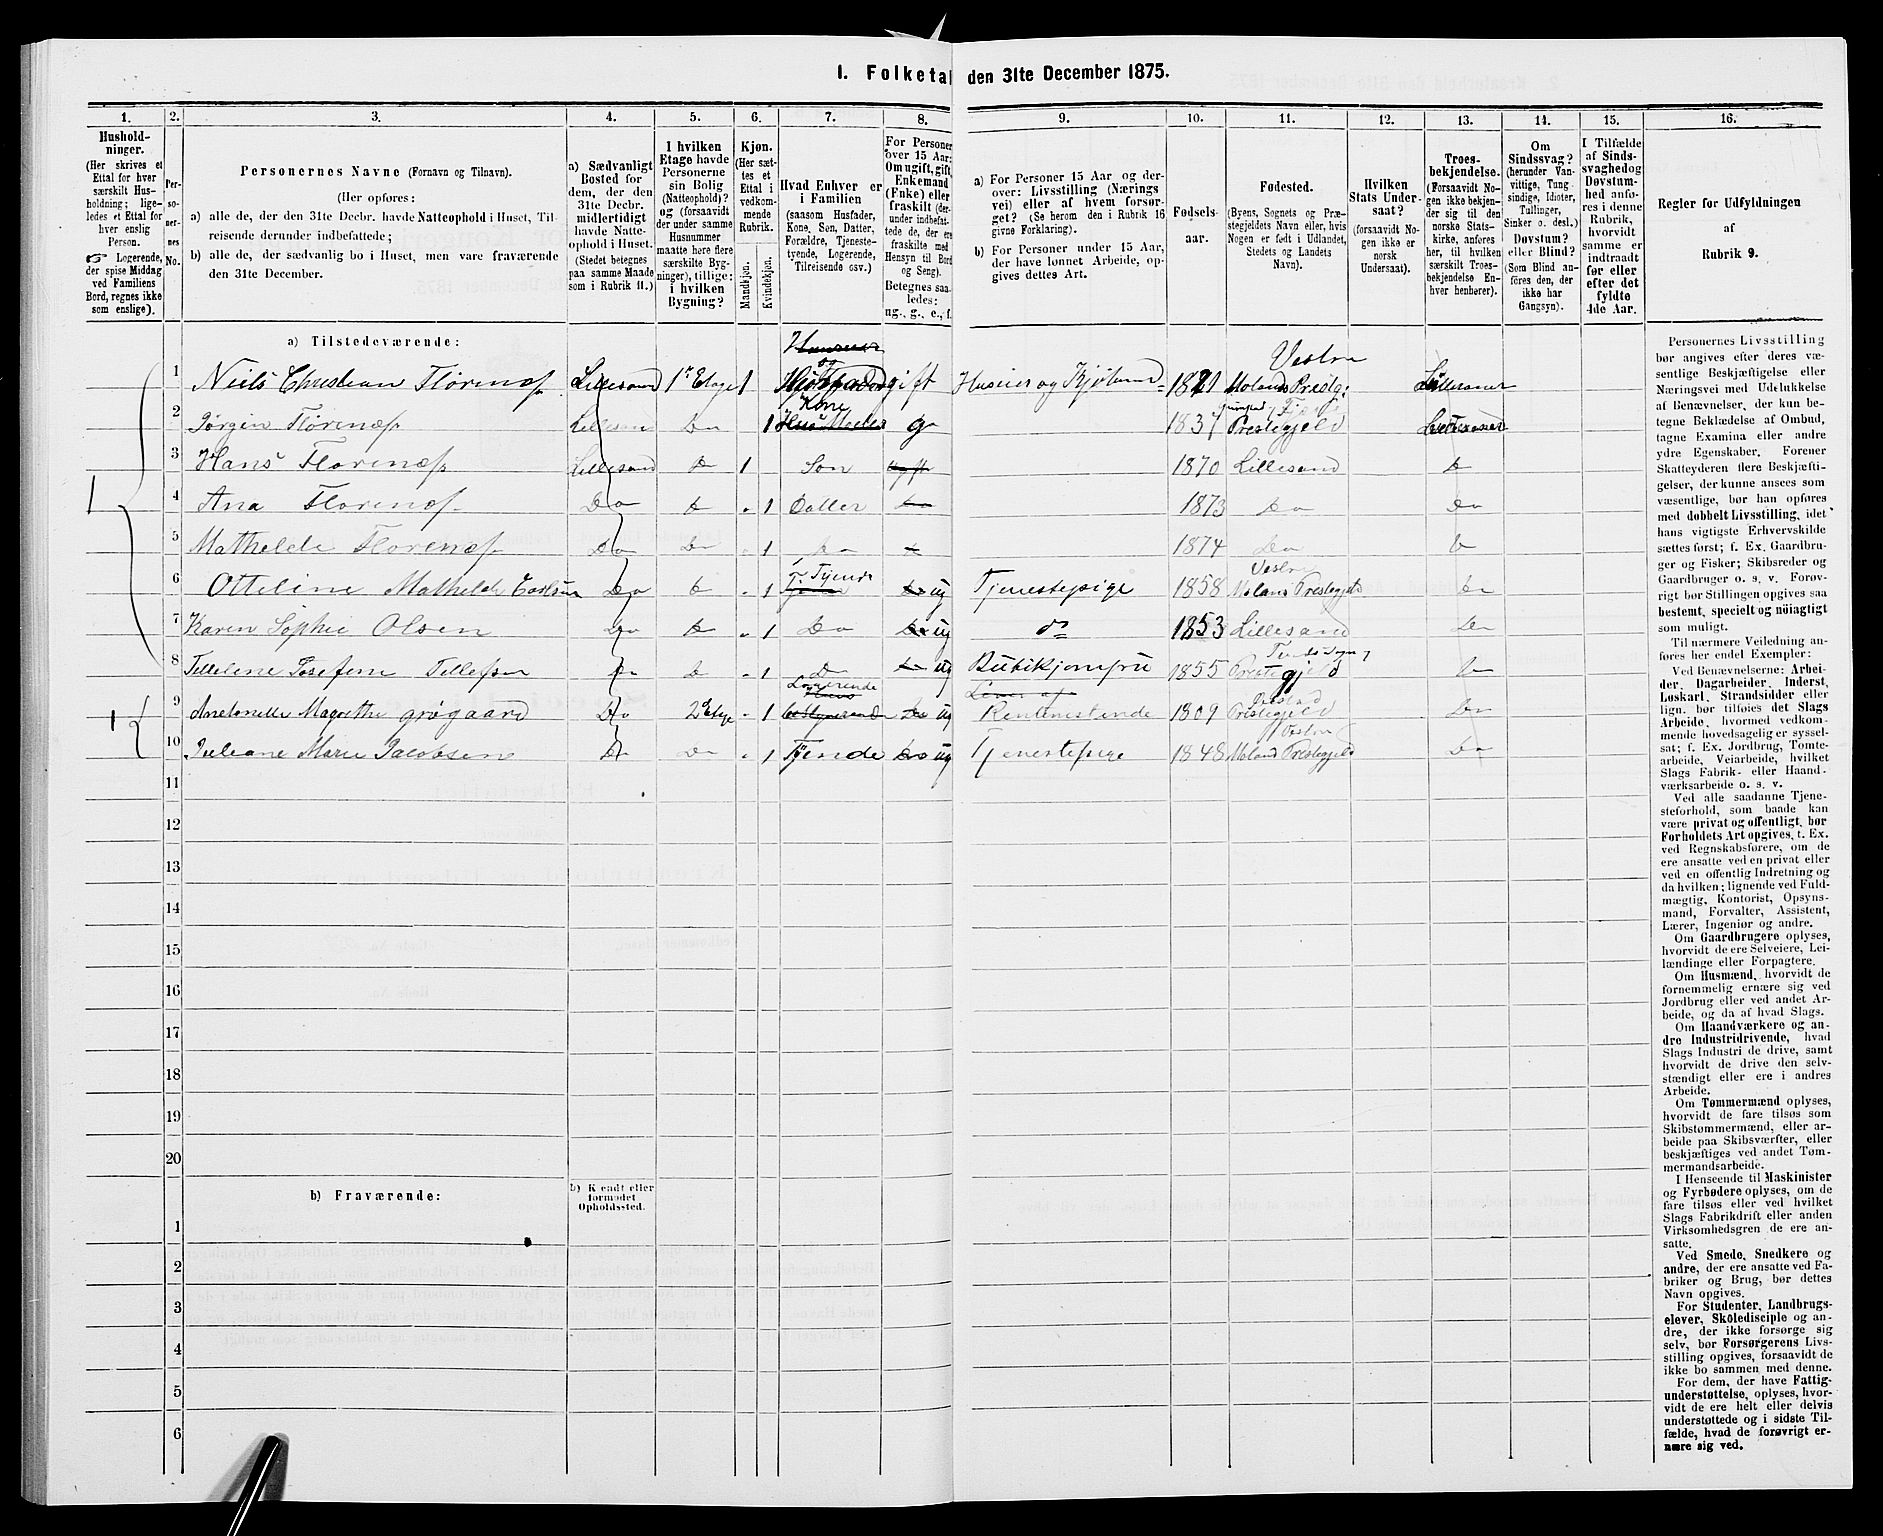 I. Folketal den 31te December 1875.
1. 2. 3. 4. 5. 6. 7. 8. 9. 10. 11. 12. 13. 14. 15. 16.
Hushold-
ninger.
(Her skrives et
Ettal for hver
særskilt Hus-
holdning; lige-
ledes et Ettal for
hver enslig
Person.
☞ Logerende,
der spise Middag
ved Familiens
Bord, regnes ikke
som enslige).
Per-
so-
ner-
nes
No.
Personernes Navne (Fornavn og Tilnavn).
(Her opføres:
a) alle de, der den 31te Decbr. havde Natteophold i Huset, Til-
reisende derunder indbefattede;
b) alle de, der sædvanlig bo i Huset, men vare fraværende
den 31te December.
a) Sædvanligt
Bosted for
dem, der den
31te Decbr.
midlertidigt
havde Natte-
ophold i Huset.
(Stedet betegnes
paa samme Maade
som i Rubrik 11.)
I hvilken
Etage havde
Personerne
sin Bolig
(Natteophold)?
og (forsaavidt
der under samme
Husnummer
maatte høre flere
særskilte Byg-
ninger), tillige:
i hvilken
Bygning?
Kjøn.
(Her sæt-
tes et
Ettal i
vedkom-
mende
Rubrik.
Mandkjøn.
Kvindekjøn.
Hvad Enhver er
i Familien
(saasom Husfader,
Kone, Søn, Datter,
Forældre, Tjeneste-
tyende, Logerende,
Tilreisende osv.)
For Personer
over 15 Aar:
Om ugift, gift,
Enkemand
(Enke) eller
fraskilt (der-
under indbefat-
tede de, der ere
fraskilte med
Hensyn til Bord
og Seng).
Betegnes saa-
ledes:
ug., g., e., f.
a) For Personer 15 Aar og der-
over: Livsstilling (Nærings
vei) eller af hvem forsør-
get? (Se herom den i Rubrik 16
givne Forklaring).
b) For Personer under 15 Aar,
der have lønnet Arbeide, op-
gives dettes Art.
Fødsels-
aar.
Fødested.
(Byens, Sognets og Præ-
stegjeldets Navn eller, hvis
Nogen er født i Udlandet,
Stedets og Landets
Navn).
Hvilken
Stats Under-
saat?
(forsaavidt No-
gen ikke er
norsk
Undersaat).
Troes-
bekjendelse.
(Forsaavidt No-
gen ikke bekjen-
der sig til den
norske Stats-
kirke, anføres
her, til hvilken
særskilt Troes-
bekjendelse En-
hver henhører).
Om
Sindssvag?
(herunder Van-
vittige, Tung-
sindige, Idioter,
Tullinger,
Sinker o. desl.)
Døvstum?
eller Blind?
(Som Blind an-
føres den, der
ikke har
Gangsyn).
I Tilfælde
af Sinds-
svaghed og
Døvstum-
hed anfø-
res i denne
Rubrik,
hvorvidt
samme er
indtraadt
før eller
efter det
fyldte
4de Aar.
Regler for Udfyldningen
af
Rubrik 9.
a) Tilstedeværende:
1 Niels Christian Florenæs Lillesand 1' Etage 1 og gift Huseier og Kjøbmand 1821 Vestre Molands Prestg:
2 Jørgin Florenæs Lillesand Do 1 Kone g 1837 Prestegjeld
3 Hans Florenæs Lillesand Do 1 Søn 1870 Lillesand Do
4 Ana Florenæs Do Do 1 Datter Do 1873 Do Do
5 Mathelde Florenæs Do Do 1 Do 1874 Do Do
6 Otteline Mathelde Carlsen Do Do 1 Tyende Do ug Tjenestepige 1858 Vestre Molans Prestegjeld Do
7 Karen Sophie Olsen Do Do 1 Do Do ug do 1853 Lillesand Do
8 Tellelene Josefine Tellefsen Do Do 1 Do Do ug Butikjomfru 1855 Prestegjeld Do
9 Anetonette Magrethe grøgaard Do 2' Etage 1 Logerende Do ug Lever af Rentenestende 1809 Prestegjeld Do
10 Juliane Marie Jacobsen Do Do 1 Tjende Do ug Tjenestepige 1848 Vestre Moland Prestegjeld Do
11
12
13
14
15
16
17
18
19
20
b) Fraværende:
b) Kendt eller
formodet
Opholdssted.
1
2
3
4
5
6
Personernes Livsstilling
bør angives efter deres væ-
sentlige Beskjæftigelse eller
Næringsvei med Udelukkelse
af Benævnelser, der kun be-
tegne Beklædelse af Ombud,
tagne Examina eller andre
ydre Egenskaber. Forener
Skatteyderen flere Beskjæfti-
gelser, der kunne ansees som
væsentlige, bør han opføres
med dobbelt Livsstilling, idet
hans vigtigste Erhvervskilde
sættes først; f. Ex. Gaardbru-
ger og Fisker; Skibsreder og
Gaardbruger o. s. v. Forøv-
rigt bør Stillingen opgives saa
bestemt, specielt og nøiagtigt
som muligt.
Til nærmere Veiledning an-
føres her endel Exempler:
Ved Benævnelserne: Arbei-
der, Dagarbeider, Inderst,
Løskarl, Strandsidder eller
lign. bør tilføies det Slags
Arbeide, hvormed vedkom-
mende hovedsagelig er syssel-
sat; f. Ex. Jordbrug, Tomte-
arbeide, Veiarbeide, hvilket
Slags Fabrik- eller Haand-
værksarbeide o. s. v.
Ved alle saadanne Tjene-
steforhold, som baade kan
være privat og offentligt, bør
Forholdets Art opgives, t. Ex.
ved Regnskabsførere, om de
ere ansatte ved en privat eller
ved en offentlig Indretning og
da hvilken; lignende ved Fuld-
mægtig, Kontorist, Opsyns-
mand, Forvalter, Assistent,
Lærer, Ingeniør og andre.
Om Gaardbrugere oplyses,
hvorvidt de ere Selveiere, Lei-
lændinge eller Forpagtere.
Om Husmænd, hvorvidt de
fornemmelig ernære sig ved
Jordbrug eller ved andet Ar-
beide, og da af hvad Slags.
Om Haandværkere og an-
dre Industridrivende, hvad
Slags Industri de drive, samt
hvorvidt de drive den selv-
stændigt eller ere i andres
Arbeide.
Om Tømmermænd oplyses,
hvorvidt de fare tilsøs som
Skibstømmermænd, eller ar-
beide paa Skibsværfter, eller
beskjæftiges ved andet Tøm-
mermandsarbeide.
I Henseende til Maskinister
og Fyrbødere oplyses, om de
fare tilsøs eller ved hvilket
Slags Fabrikdrift eller anden
Virksomhedsgren de ere an-
satte.
Ved Smede, Snedkere og
andre, der ere ansatte ved Fa-
briker og Brug, bør dettes
Navn opgives.
For Studenter, Landbrugs-
elever, Skoledisciple og an-
dre, der ikke forsørge sig
selv, bør Forsørgerens Livs-
stilling opgives, forsaavidt de
ikke bo sammen med denne.
For dem, der have Fattig-
understøttelse, oplyses, hvor-
vidt de ere helt eller delvis
understøttede og i sidste Til-
fælde, hvad de forøvrigt er-
nære sig ved.